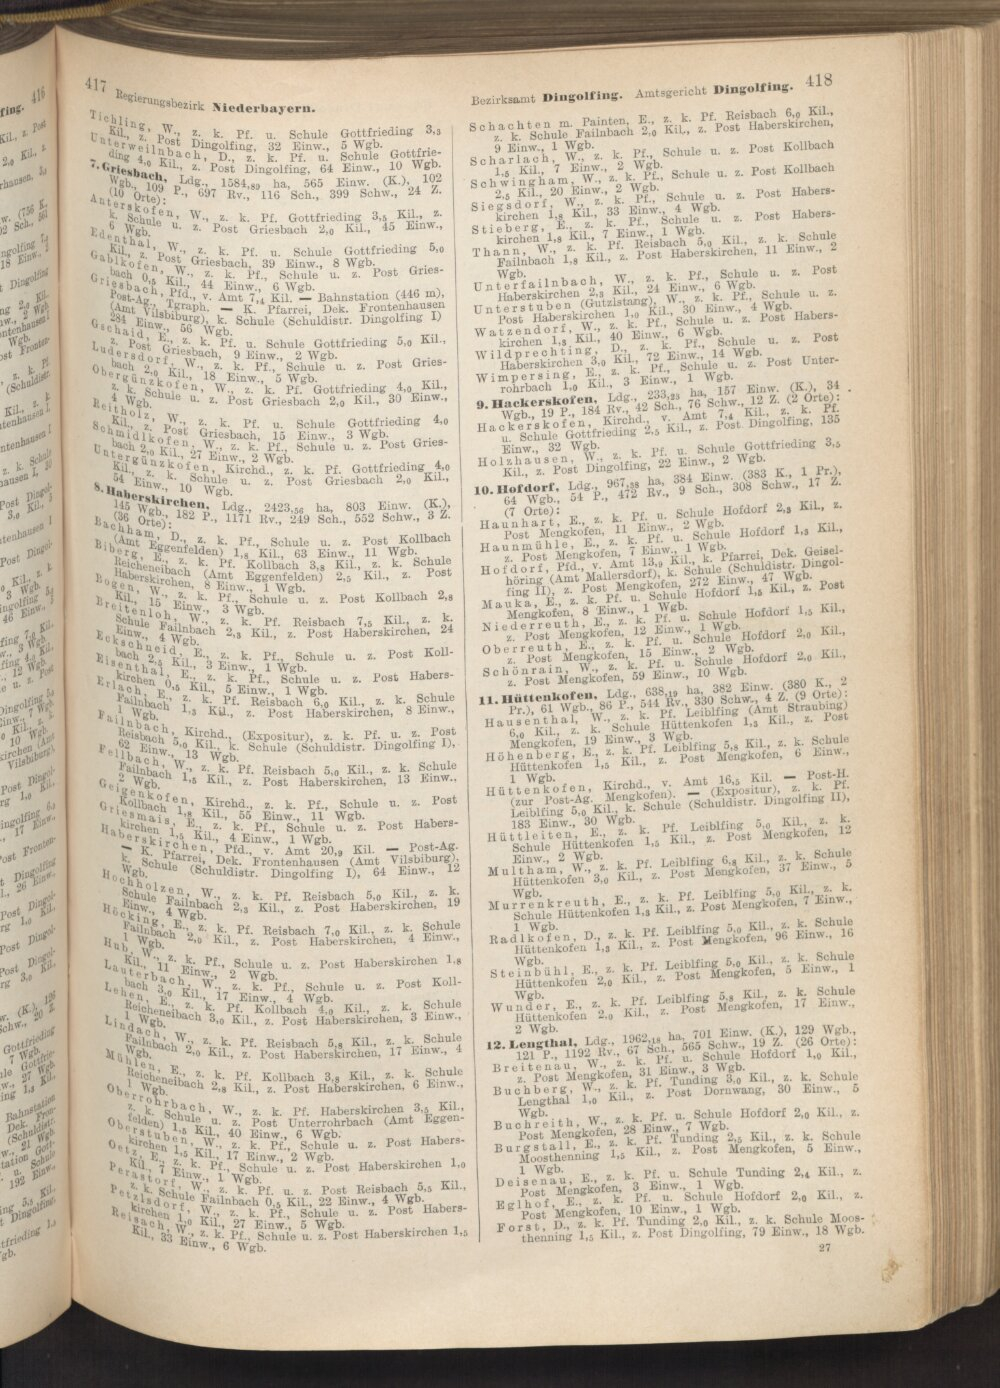 417 Regierungsbezirk Niederbayern.
Tichling, W., z. k. Pf. u. Schule Gottfrieding 3,3
Kil., z. Post Dingolfing, 32 Einw., 5 Wgb.
Unterweilnbach, D., z. k. Pf. u. Schule Gottfrie-
ding 4,0 Kil., z. Post Dingolfing, 64 Einw., 10 Wgb.
7. Griesbach, Ldg., 1584,89 ha, 565 Einw. (K.), 102
Wgb., 109 P., 697 Rv., 116 Sch., 399 Schw., 24 Z.
(10 Orte):
Anterskofen, W., z. k. Pf. Gottfrieding 3,5 Kil., z.
k. Schule u. z. Post Griesbach 2,0 Kil., 45 Einw.,
6 Wgb.
Edenthal, W., z. k. Pf. u. Schule Gottfrieding 5,0
Kil., z. Post Griesbach, 39 Einw., 8 Wgb.
Gablkofen, W., z. k. Pf., Schule u. z. Post Gries-
bach 0,5 Kil., 44 Einw., 6 Wgb.
Griesbach, Pfd., v. Amt 7,4 Kil. — Bahnstation (446 m),
Post-Ag., Tgraph. — K. Pfarrei, Dek. Frontenhausen
(Amt Vilsbiburg), k. Schule (Schuldistr. Dingolfing I)
284 Einw., 56 Wgb.
Gschaid, E., z. k. Pf. u. Schule Gottfrieding 5,0 Kil.,
z. Post Griesbach, 9 Einw., 2 Wgb.
Ludersdorf, W., z. k. Pf., Schule u. z. Post Gries-
bach 2,0 Kil., 18 Einw., 5 Wgb.
Obergünzkofen, W., z. k. Pf. Gottfrieding 4,0 Kil.,
z. k. Schule u. z. Post Griesbach 2,0 Kil., 30 Einw.,
4 Wgb.
Reitholz, W., z. k. Pf. u. Schule Gottfrieding 4,0
Kil., z. Post Griesbach, 15 Einw., 3 Wgb.
Schmidlkofen, W., z. k. Pf., Schule u. z. Post Gries-
bach 2,0 Kil., 27 Einw., 2 Wgb.
Untergünzkofen, Kirchd., z. k. Pf. Gottfrieding 4,0
Kil., z. k. Schule u. z. Post Griesbach 2,0 Kil.,
54 Einw., 10 Wgb.
8. Haberskirchen, Ldg., 2423,56 ha, 803 Einw. (K.),
145 Wgb., 182 P., 1171 Rv., 249 Sch., 552 Schw., 3 Z.
(36 Orte):
Bachham, D., z. k. Pf., Schule u. z. Post Kollbach
(Amt Eggenfelden) 1,8 Kil., 63 Einw., 11 Wgb.
Biberg, E., z. k. Pf. Kollbach 3,8 Kil., z. k. Schule
Reicheneibach (Amt Eggenfelden) 2,5 Kil., z. Post
Haberskirchen, 8 Einw., 1 Wgb.
Bogen, W., z. k. Pf., Schule u. z. Post Kollbach 2,8
Kil., 15 Einw., 3 Wgb.
Breitenloh, W., z. k. Pf. Reisbach 7,5 Kil., z. k.
Schule Failnbach 2,3 Kil., z. Post Haberskirchen, 24
Einw., 4 Wgb.
Eckschneid, E., z. k. Pf., Schule u. z. Post Koll-
bach 2,5 Kil., 3 Einw., 1 Wgb.
Eisenthal, E., z. k. Pf., Schule u. z. Post Habers-
kirchen 0,5 Kil., 5 Einw., 1 Wgb.
Erlach, E., z. k. Pf. Reisbach 6,0 Kil., z. k. Schule
Failnbach 1,3 Kil., z. Post Haberskirchen, 8 Einw.,
1 Wgb.
Failnbach, Kirchd., (Expositur), z. k. Pf. u. z. Post
Reisbach 5,0 Kil., k. Schule (Schuldistr. Dingolfing I),
62 Einw., 13 Wgb.
Fellbach, W., z. k. Pf. Reisbach 5,0 Kil., z. k. Schule
Failnbach 1,5 Kil., z. Post Haberskirchen, 13 Einw.,
2 Wgb.
Geigenkofen, Kirchd., z. k. Pf., Schule u. z. Post
Kollbach 1,8 Kil., 55 Einw., 11 Wgb.
Griesmais, E., z. k. Pf., Schule u. z. Post Habers-
kirchen 1,5 Kil., 4 Einw., 1 Wgb.
Haberskirchen, Pfd., v. Amt 20,9 Kil. — Post-Ag.
— K. Pfarrei, Dek. Frontenhausen (Amt Vilsbiburg),
k. Schule (Schuldistr. Dingolfing I), 64 Einw., 12
Wgb.
Hochholzen, W., z. k. Pf. Reisbach 5,0 Kil., z. k.
Schule Failnbach 2,3 Kil., z. Post Haberskirchen, 19
Einw., 4 Wgb.
Höcking, E., z. k. Pf. Reisbach 7,0 Kil., z. k. Schule
Failnbach 2,0 Kil., z. Post Haberskirchen, 4 Einw.,
1 Wgb.
Hub, W., z. k. Pf., Schule u. z. Post Haberskirchen 1,8
Kil., 11 Einw., 2 Wgb.
Lauterbach, W., z. k. Pf., Schule u. z. Post Koll-
bach 3,0 Kil., 17 Einw., 4 Wgb.
Lehen, E., z. k. Pf. Kollbach 4,0 Kil., z. k. Schule
Reicheneibach 3,0 Kil., z. Post Haberskirchen, 3 Einw.,
1 Wgb.
Lindach, W., z. k. Pf. Reisbach 5,8 Kil., z. k. Schule
Failnbach 2,0 Kil., z. Post Haberskirchen, 17 Einw., 4
Wgb.
Mühlen, E., z. k. Pf. Kollbach 3,8 Kil., z. k. Schule
Reicheneibach 2,8 Kil., z. Post Haberskirchen, 6 Einw.,
1 Wgb.
Oberrohrbach, W., z. k. Pf. Haberskirchen 3,5 Kil.,
z. k. Schule u. z. Post Unterrohrbach (Amt Eggen-
felden) 1,5 Kil., 40 Einw., 6 Wgb.
Oberstuben, W., z. k. Pf., Schule u. z. Post Habers-
kirchen 1,5 Kil., 17 Einw., 2 Wgb.
Oetz, E., z. k. Pf., Schule u. z. Post Haberskirchen 1,0
Kil., 7 Einw., 1 Wgb.
Perastorf, W., z. k. Pf. u. z. Post Reisbach 5,5 Kil.,
z. k. Schule Failnbach 0,5 Kil., 22 Einw., 4 Wgb.
Petzlsdorf, W., z. k. Pf., Schule u. z. Post Habers-
kirchen 1,0 Kil., 27 Einw., 5 Wgb.
Reisach, W., z. k. Pf., Schule u. z. Post Haberskirchen 1,5
Kil., 33 Einw., 6 Wgb.
Bezirksamt Dingolfing. Amtsgericht Dingolfing. 418
Schachten m. Painten, E., z. k. Pf. Reisbach 6,0 Kil.,
z. k. Schule Failnbach 2,0 Kil., z. Post Haberskirchen,
9 Einw., 1 Wgb.
Scharlach, W., z. k. Pf., Schule u. z. Post Kollbach
1,5 Kil., 7 Einw., 2 Wgb.
Schwingham, W., z. k. Pf., Schule u. z. Post Kollbach
2,5 Kil., 20 Einw., 2 Wgb.
Siegsdorf, W., z. k. Pf., Schule u. z. Post Habers-
kirchen 1,8 Kil., 33 Einw., 4 Wgb.
Stieberg, E., z. k. Pf., Schule u. z. Post Habers-
kirchen 1,8 Kil., 7 Einw., 1 Wgb.
Thann, W., z. k. Pf. Reisbach 5,0 Kil., z. k. Schule
Failnbach 1,8 Kil., z. Post Haberskirchen, 11 Einw., 2
Wgb.
Unterfailnbach, W., z. k. Pf., Schule u. z. Post
Haberskirchen 2,3 Kil., 24 Einw., 6 Wgb.
Unterstuben (Gutzistang), W., z. k. Pf., Schule u. z.
Post Haberskirchen 1,0 Kil., 30 Einw., 4 Wgb.
Watzendorf, W., z. k. Pf., Schule u. z. Post Habers-
kirchen 1,3 Kil., 40 Einw., 6 Wgb.
Wildprechting, D., z. k. Pf., Schule u. z. Post
Haberskirchen 3,0 Kil., 72 Einw., 14 Wgb.
Wimpersing, E., z. k. Pf., Schule u. z. Post Unter-
rohrbach 1,0 Kil., 3 Einw., 1 Wgb.
9. Hackerskofen, Ldg., 233,23 ha, 157 Einw. (K.), 34
Wgb., 19 P., 184 Rv., 42 Sch., 76 Schw., 12 Z. (2 Orte):
Hackerskofen, Kirchd., v. Amt 7,4 Kil., z. k. Pf.
u. Schule Gottfrieding 2,5 Kil., z. Post Dingolfing, 135
Einw., 32 Wgb.
Holzhausen, W., z. k. Pf. u. Schule Gottfrieding 3,5
Kil., z. Post Dingolfing, 22 Einw., 2 Wgb.
10. Hofdorf, Ldg., 967,58 ha, 384 Einw. (383 K., 1 Pr.),
64 Wgb., 54 P., 472 Rv., 9 Sch., 308 Schw., 17 Z.
(7 Orte):
Haunhart, E., z. k. Pf. u. Schule Hofdorf 2,3 Kil., z.
Post Mengkofen, 11 Einw., 2 Wgb.
Haunmühle, E., z. k. Pf. u. Schule Hofdorf 1,8 Kil.,
z. Post Mengkofen, 7 Einw., 1 Wgb.
Hofdorf, Pfd., v. Amt 13,9 Kil., k. Pfarrei, Dek. Geisel-
höring (Amt Mallersdorf), k. Schule (Schuldistr. Dingol-
fing II), z. Post Mengkofen, 272 Einw., 47 Wgb.
Mauka, E., z. k. Pf. u. Schule Hofdorf 1,5 Kil., z. Post
Mengkofen, 8 Einw., 1 Wgb.
Niederreuth, E., z. k. Pf. u. Schule Hofdorf 1,5 Kil.,
z. Post Mengkofen, 12 Einw., 1 Wgb.
Oberreuth, E., z. k. Pf. u. Schule Hofdorf 2,0 Kil.,
z. Post Mengkofen, 15 Einw., 2 Wgb.
Schönrain, W., z. k. Pf. u. Schule Hofdorf 2,0 Kil.,
z. Post Mengkofen, 59 Einw., 10 Wgb.
11. Hüttenkofen, Ldg., 638,19 ha, 382 Einw. (380 K., 2
Pr.), 61 Wgb., 86 P., 544 Rv., 330 Schw., 4 Z. (9 Orte):
Hausenthal, W., z. k. Pf. Leiblfing (Amt Straubing)
6,0 Kil., z. k. Schule Hüttenkofen 1,3 Kil., z. Post
Mengkofen, 19 Einw., 3 Wgb.
Höhenberg, E., z. k. Pf. Leiblfing 5,8 Kil., z. k. Schule
Hüttenkofen 1,5 Kil., z. Post Mengkofen, 6 Einw.,
1 Wgb.
Hüttenkofen, Kirchd., v. Amt 16,5 Kil. — Post-H.
(zur Post-Ag. Mengkofen). — (Expositur), z. k. Pf.
Leiblfing 5,0 Kil., k. Schule (Schuldistr. Dingolfing II),
183 Einw., 30 Wgb.
Hüttleiten, E., z. k. Pf. Leiblfing 5,0 Kil., z. k.
Schule Hüttenkofen 1,5 Kil., z. Post Mengkofen, 12
Einw., 2 Wgb.
Multham, W., z. k. Pf. Leiblfing 6,8 Kil., z. k. Schule
Hüttenkofen 3,0 Kil., z. Post Mengkofen, 37 Einw., 5
Wgb.
Murrenkreuth, E., z. k. Pf. Leiblfing 5,0 Kil., z. k.
Schule Hüttenkofen 1,3 Kil., z. Post Mengkofen, 7 Einw.,
1 Wgb.
Radlkofen, D., z. k. Pf. Leiblfing 5,0 Kil., z. k. Schule
Hüttenkofen 1,3 Kil., z. Post Mengkofen, 96 Einw., 16
Wgb.
Steinbühl, E., z. k. Pf. Leiblfing 5,0 Kil., z. k. Schule
Hüttenkofen 2,0 Kil., z. Post Mengkofen, 5 Einw., 1
Wgb.
Wunder, E., z. k. Pf. Leiblfing 5,8 Kil., z. k. Schule
Hüttenkofen 2,0 Kil., z. Post Mengkofen, 17 Einw.,
2 Wgb.
12. Lengthal, Ldg., 1962,18 ha, 701 Einw. (K.), 129 Wgb.,
121 P., 1192 Rv., 67 Sch., 565 Schw., 19 Z. (26 Orte):
Breitenau, W., z. k. Pf. u. Schule Hofdorf 1,0 Kil.,
z. Post Mengkofen, 31 Einw., 3 Wgb.
Buchberg, W., z. k. Pf. Tunding 3,0 Kil., z. k. Schule
Lengthal 1,0 Kil., z. Post Dornwang, 30 Einw., 5
Wgb.
Buchreith, W., z. k. Pf. u. Schule Hofdorf 2,0 Kil., z.
Post Mengkofen, 28 Einw., 7 Wgb.
Burgstall, E., z. k. Pf. Tunding 2,5 Kil., z. k. Schule
Moosthenning 1,5 Kil., z. Post Mengkofen, 5 Einw.,
1 Wgb.
Deisenau, E., z. k. Pf. u. Schule Tunding 2,4 Kil., z.
Post Mengkofen, 3 Einw., 1 Wgb.
Eglhof, E., z. k. Pf. u. Schule Hofdorf 2,0 Kil., z.
Post Mengkofen, 10 Einw., 1 Wgb.
Forst, D., z. k. Pf. Tunding 2,0 Kil., z. k. Schule Moos-
thenning 1,5 Kil., z. Post Dingolfing, 79 Einw., 18 Wgb.
27